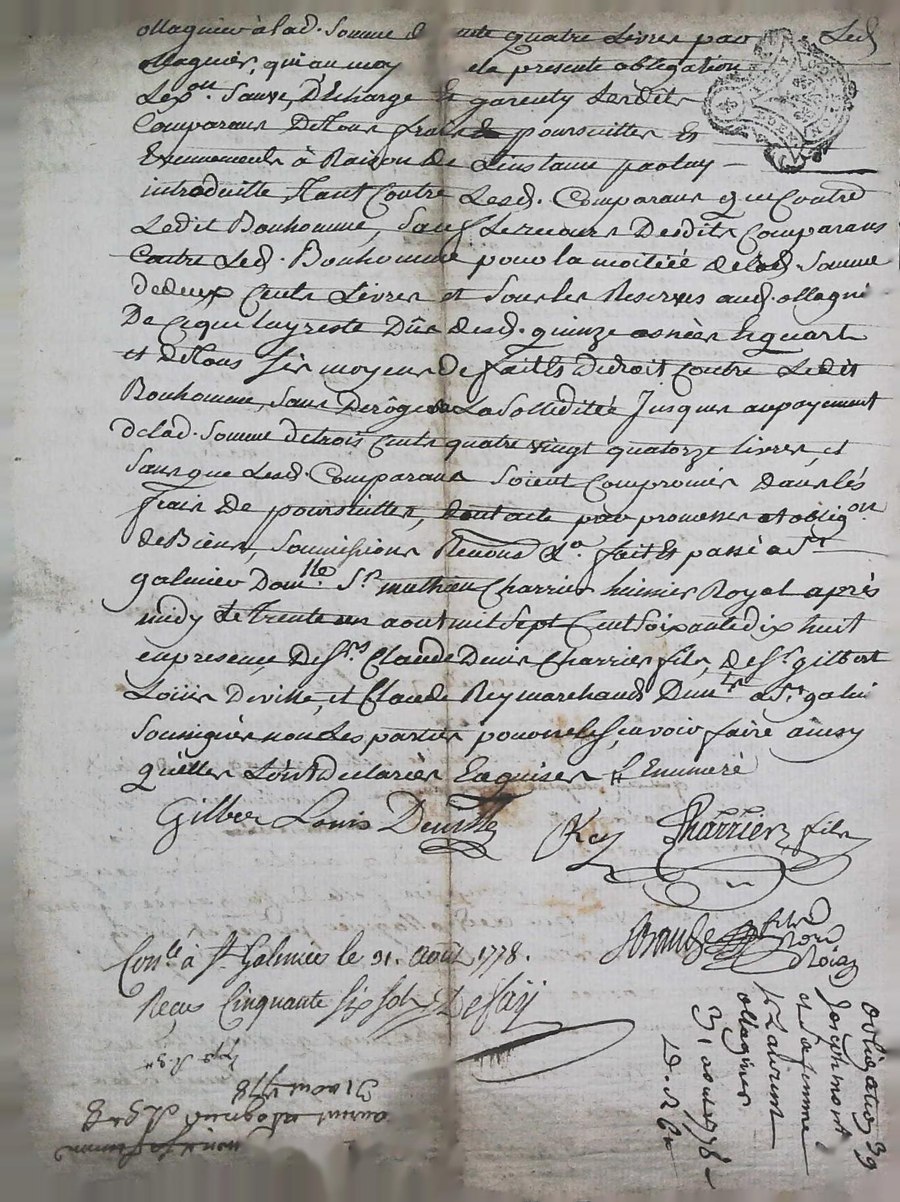 ollagnier à lad. Somme d nte quatre Livres par Led
ollagnier, qui au moy de la presente obligation
Sauve, Décharge Et garenty Lesdits
Comparans De tous frais de poursuittes Et
Evennements à Raison de L'instance par luy
introduitte tant Contre Lesd. Comparans que Contre
Ledit Bonhomme, Sauf Le recours Desdits Comparans
Contre Led. Bonhomme pour la moitiée de lad. Somme
de deux Cents Livres et Sous les Reserves aud. ollagni
De ce qui luy reste Dûe desd. quinze asnées Equart
et de tous Ses moyens de fait Et De droit Contre Ledit
Bonhomme, Sans Déroger a La Solliditée Jusques au payement
de lad. Somme de trois Cents quatre vingt quatorze livres, et
Sans que Lesd. Comparans Soient Compromis Dans les
frais De poursuittes, dont acte par promesses et oblig.on
de Biens, Soumissions Renons &a. fait Et passé a St
galmier Dom.lle Sr. mathieu Charrier huissier Royal après
midy Le trente un aout mil Sept Cent Soixante dix huit
en presence De Srs. Claude Denis Charrier fils, de Sr. gilbert
Louis Deville, et Claude Rey marchands Dem.ts a St. galmi
Soussignés non Les parties pour ne Sçavoir faire ainsy
qu'elles L'ont declarées Enquises Et
Gilber Louis Deville Rey Charrier fils
Con.lé à St. Galmier le 31. Août 1778.
Reçus Cinquante Six Sols Defay
obligation 39
Joseph mont
et Sa femme
a Laurent
ollagnier
31 aout 1778
31 aout 1778